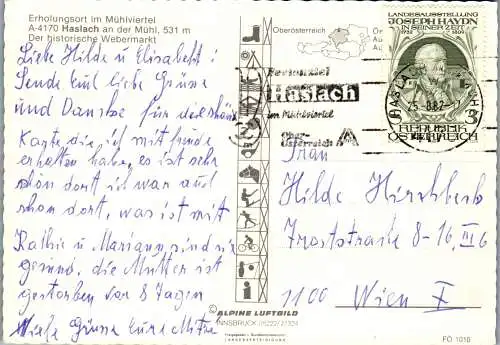 Erholungsort im Mühlviertel
A-4170 Haslach an der Mühl, 531 m
Der historische Webermarkt
Liebe Hilde u Elisabeth!
Sende Euch liebe Grüsse
und Danke für die schöne
Karte die ich mit freude
erhalten habe, es ist sehr
schön dort ich war auch
schon dort, was ist mit
Kathie u Mariann, sind sie
gesund, die Mutter ist
gestorben vor 8 Tagen
Viele Grüsse Eure Mitzi
Oberösterreich
LANDESAUSSTELLUNG
JOSEPH HAYDN
IN SEINER ZEIT
1732 1809
S 3
REPUBLIK
ÖSTERREICH
HASLACH
25. 8.82
Ferienziel
Haslach
im Mühlviertel
Ober-
österreich
Frau
Hilde Hirschberb
Troststrasse 8-16, III/6
1100 Wien X
© ALPINE LUFTBILD
INNSBRUCK 05222/21324
FO 1010